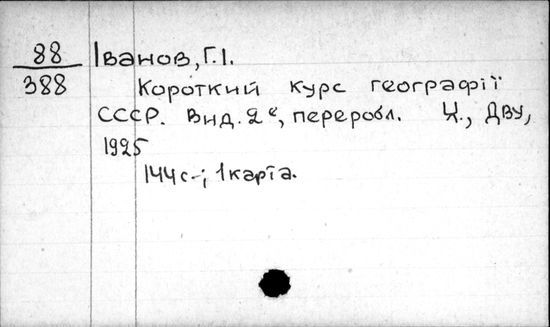 88 Іванов, Г.І.
388 Короткий курс географії
СССР. Вид. 2е, переробл. Х., ДВУ,
1925
144с.; 1 карта.